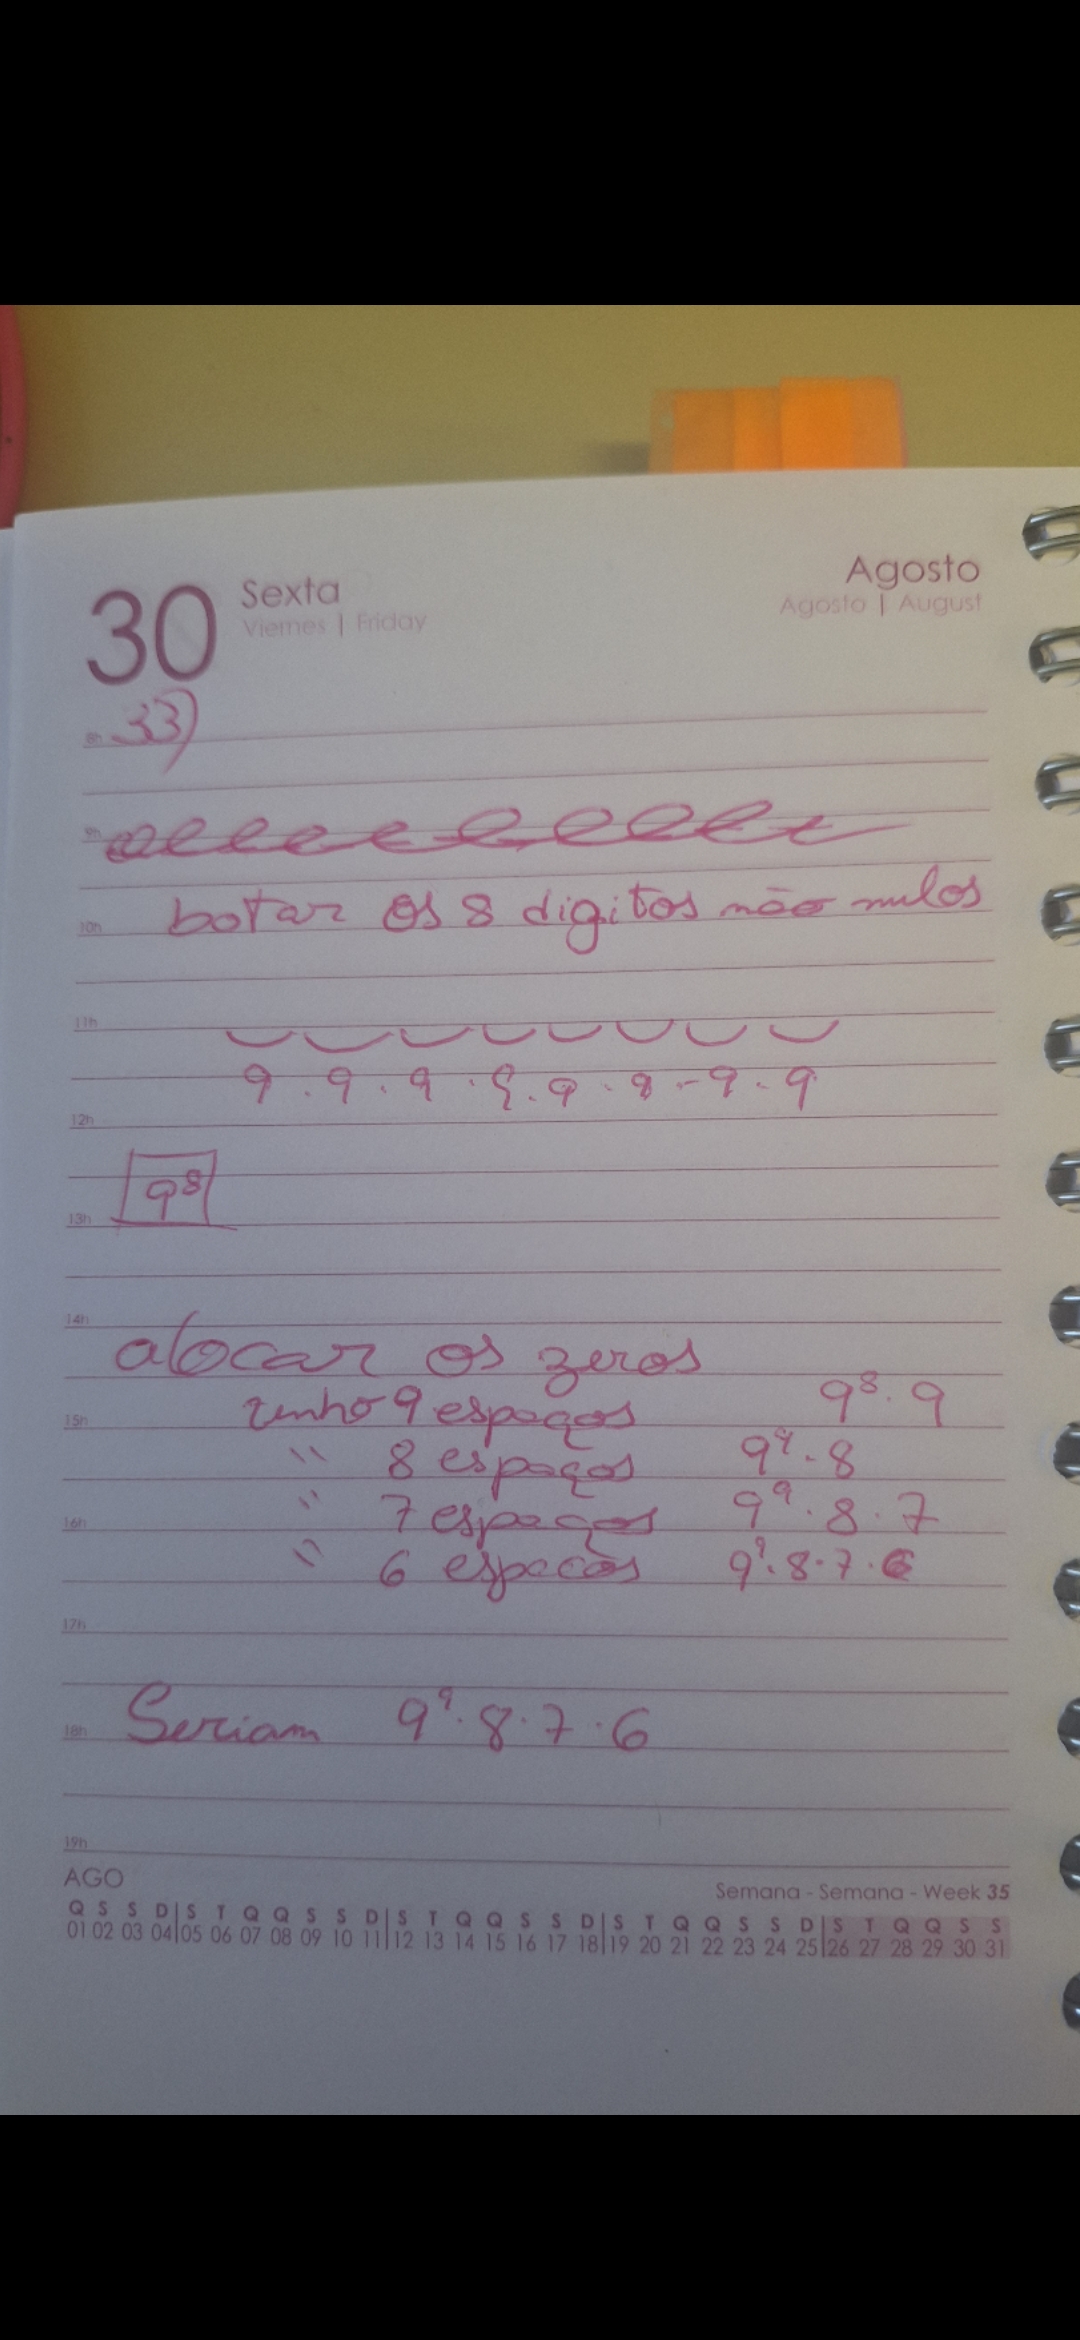 30 Sexta
Viernes | Friday
Agosto
Agosto | August
8h 33)
9h
10h botar os 8 digitos não nulos
11h
9 . 9 . 9 . 9 . 9 . 9 - 9 . 9
12h
9⁸
13h
14h
alocar os zeros
15h tenho 9 espaços 9⁸ . 9
" 8 espaços 9⁹ . 8
16h " 7 espaços 9⁹ . 8 . 7
" 6 espacos 9⁹ . 8 . 7 . 6
17h
18h Seriam 9⁹ . 8 . 7 . 6
19h
AGO
Semana - Semana - Week 35
Q S S D | S T Q Q S S D | S T Q Q S S D | S T Q Q S S D | S T Q Q S S
01 02 03 04 | 05 06 07 08 09 10 11 | 12 13 14 15 16 17 18 | 19 20 21 22 23 24 25 | 26 27 28 29 30 31